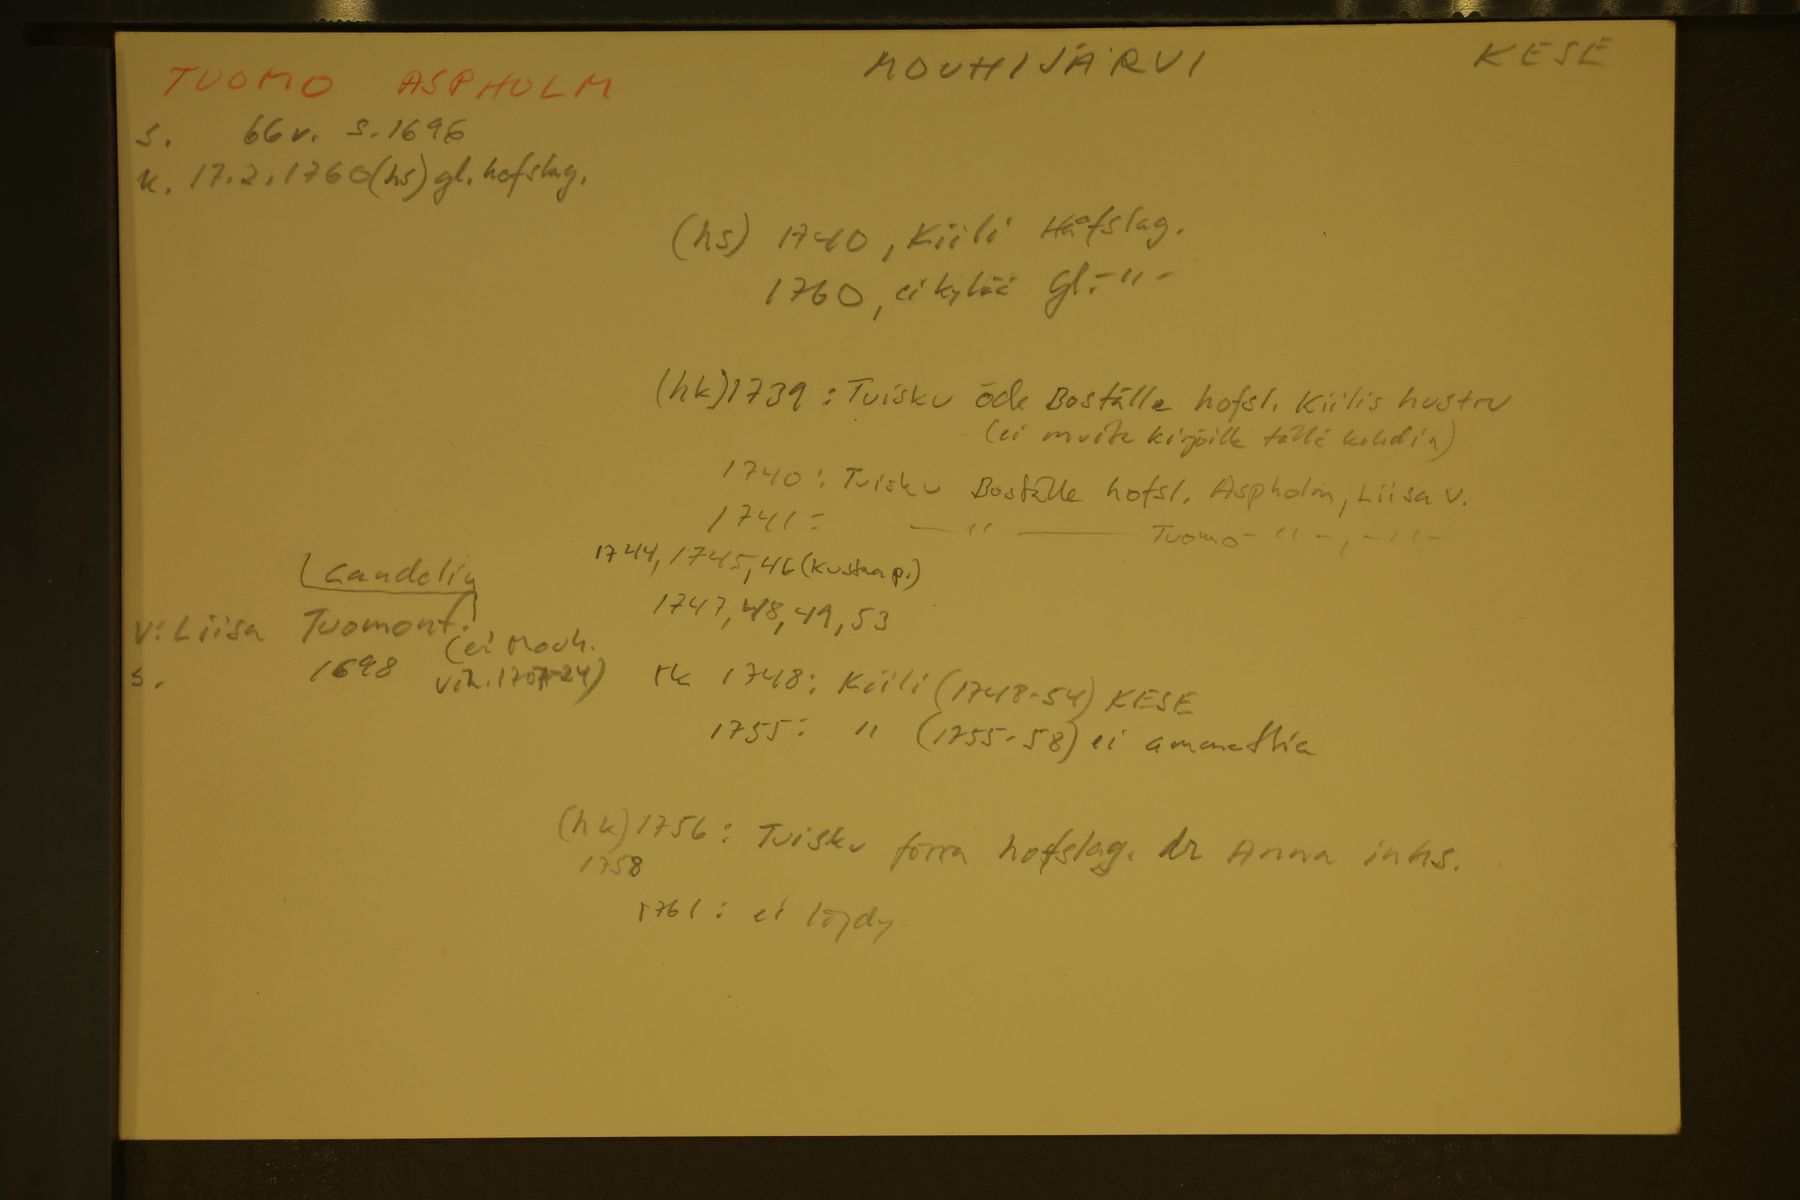 TUOMO ASPHOLM MOUHIJÄRVI KESE
s. 66 v. s. 1696
k. 17.2.1760 (hs) gl. hofslag.
(hs) 1740, Kiili Håfslag.
1760, ei kylää Gl. -"-
(hk) 1739: Tuisku öde Boställe hofsl. Kiilis hustru
(ei muita kirjoille tällä kohdin)
1740: Tuisku Boställe hofsl. Aspholm, Liisa v.
1741: —"— Tuomo -"-, -"-
1744, 1745, 46 (Kustaa p.)
1747, 48, 49, 53
Candelin
v: Liisa Tuomont. (ei Mouh.
s. 1698 vih. 1707-24)
rk 1748: Kiili (1748-54) KESE
1755: " (1755-58) ei ammattia
(hk) 1756: Tuisku förra hofslag. dr Anna inhs.
1758
1761: ei löydy